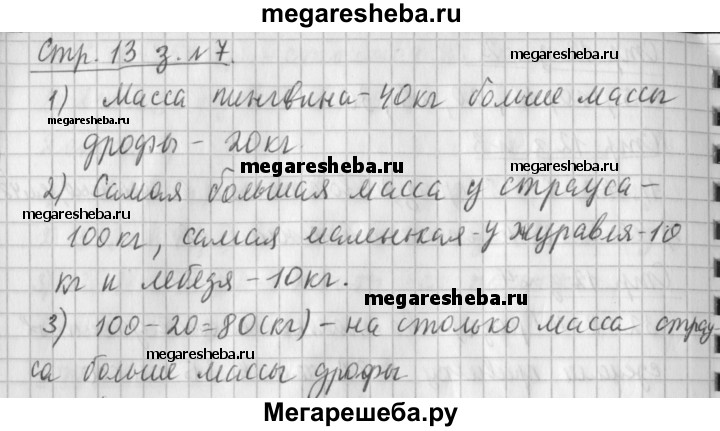 megaresheba.ru
Стр. 13 з. №7.
megaresheba.ru
1) Масса пингвина - 40кг больше массы
megaresheba.ru
дрофы - 20кг.
megaresheba.ru
megaresheba.ru
2) Самая большая масса у страуса -
megaresheba.ru
100кг, самая маленькая - у журавля - 10
кг и лебедя - 10кг.
megaresheba.ru
3) 100 - 20 = 80(кг) - на столько масса страу
megaresheba.ru
са больше массы дрофы.
Мегарешеба.ру